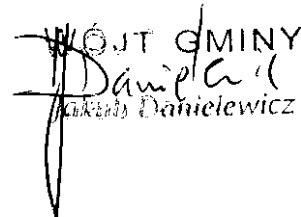 WÓJT GMINY
Jakub Danielewicz